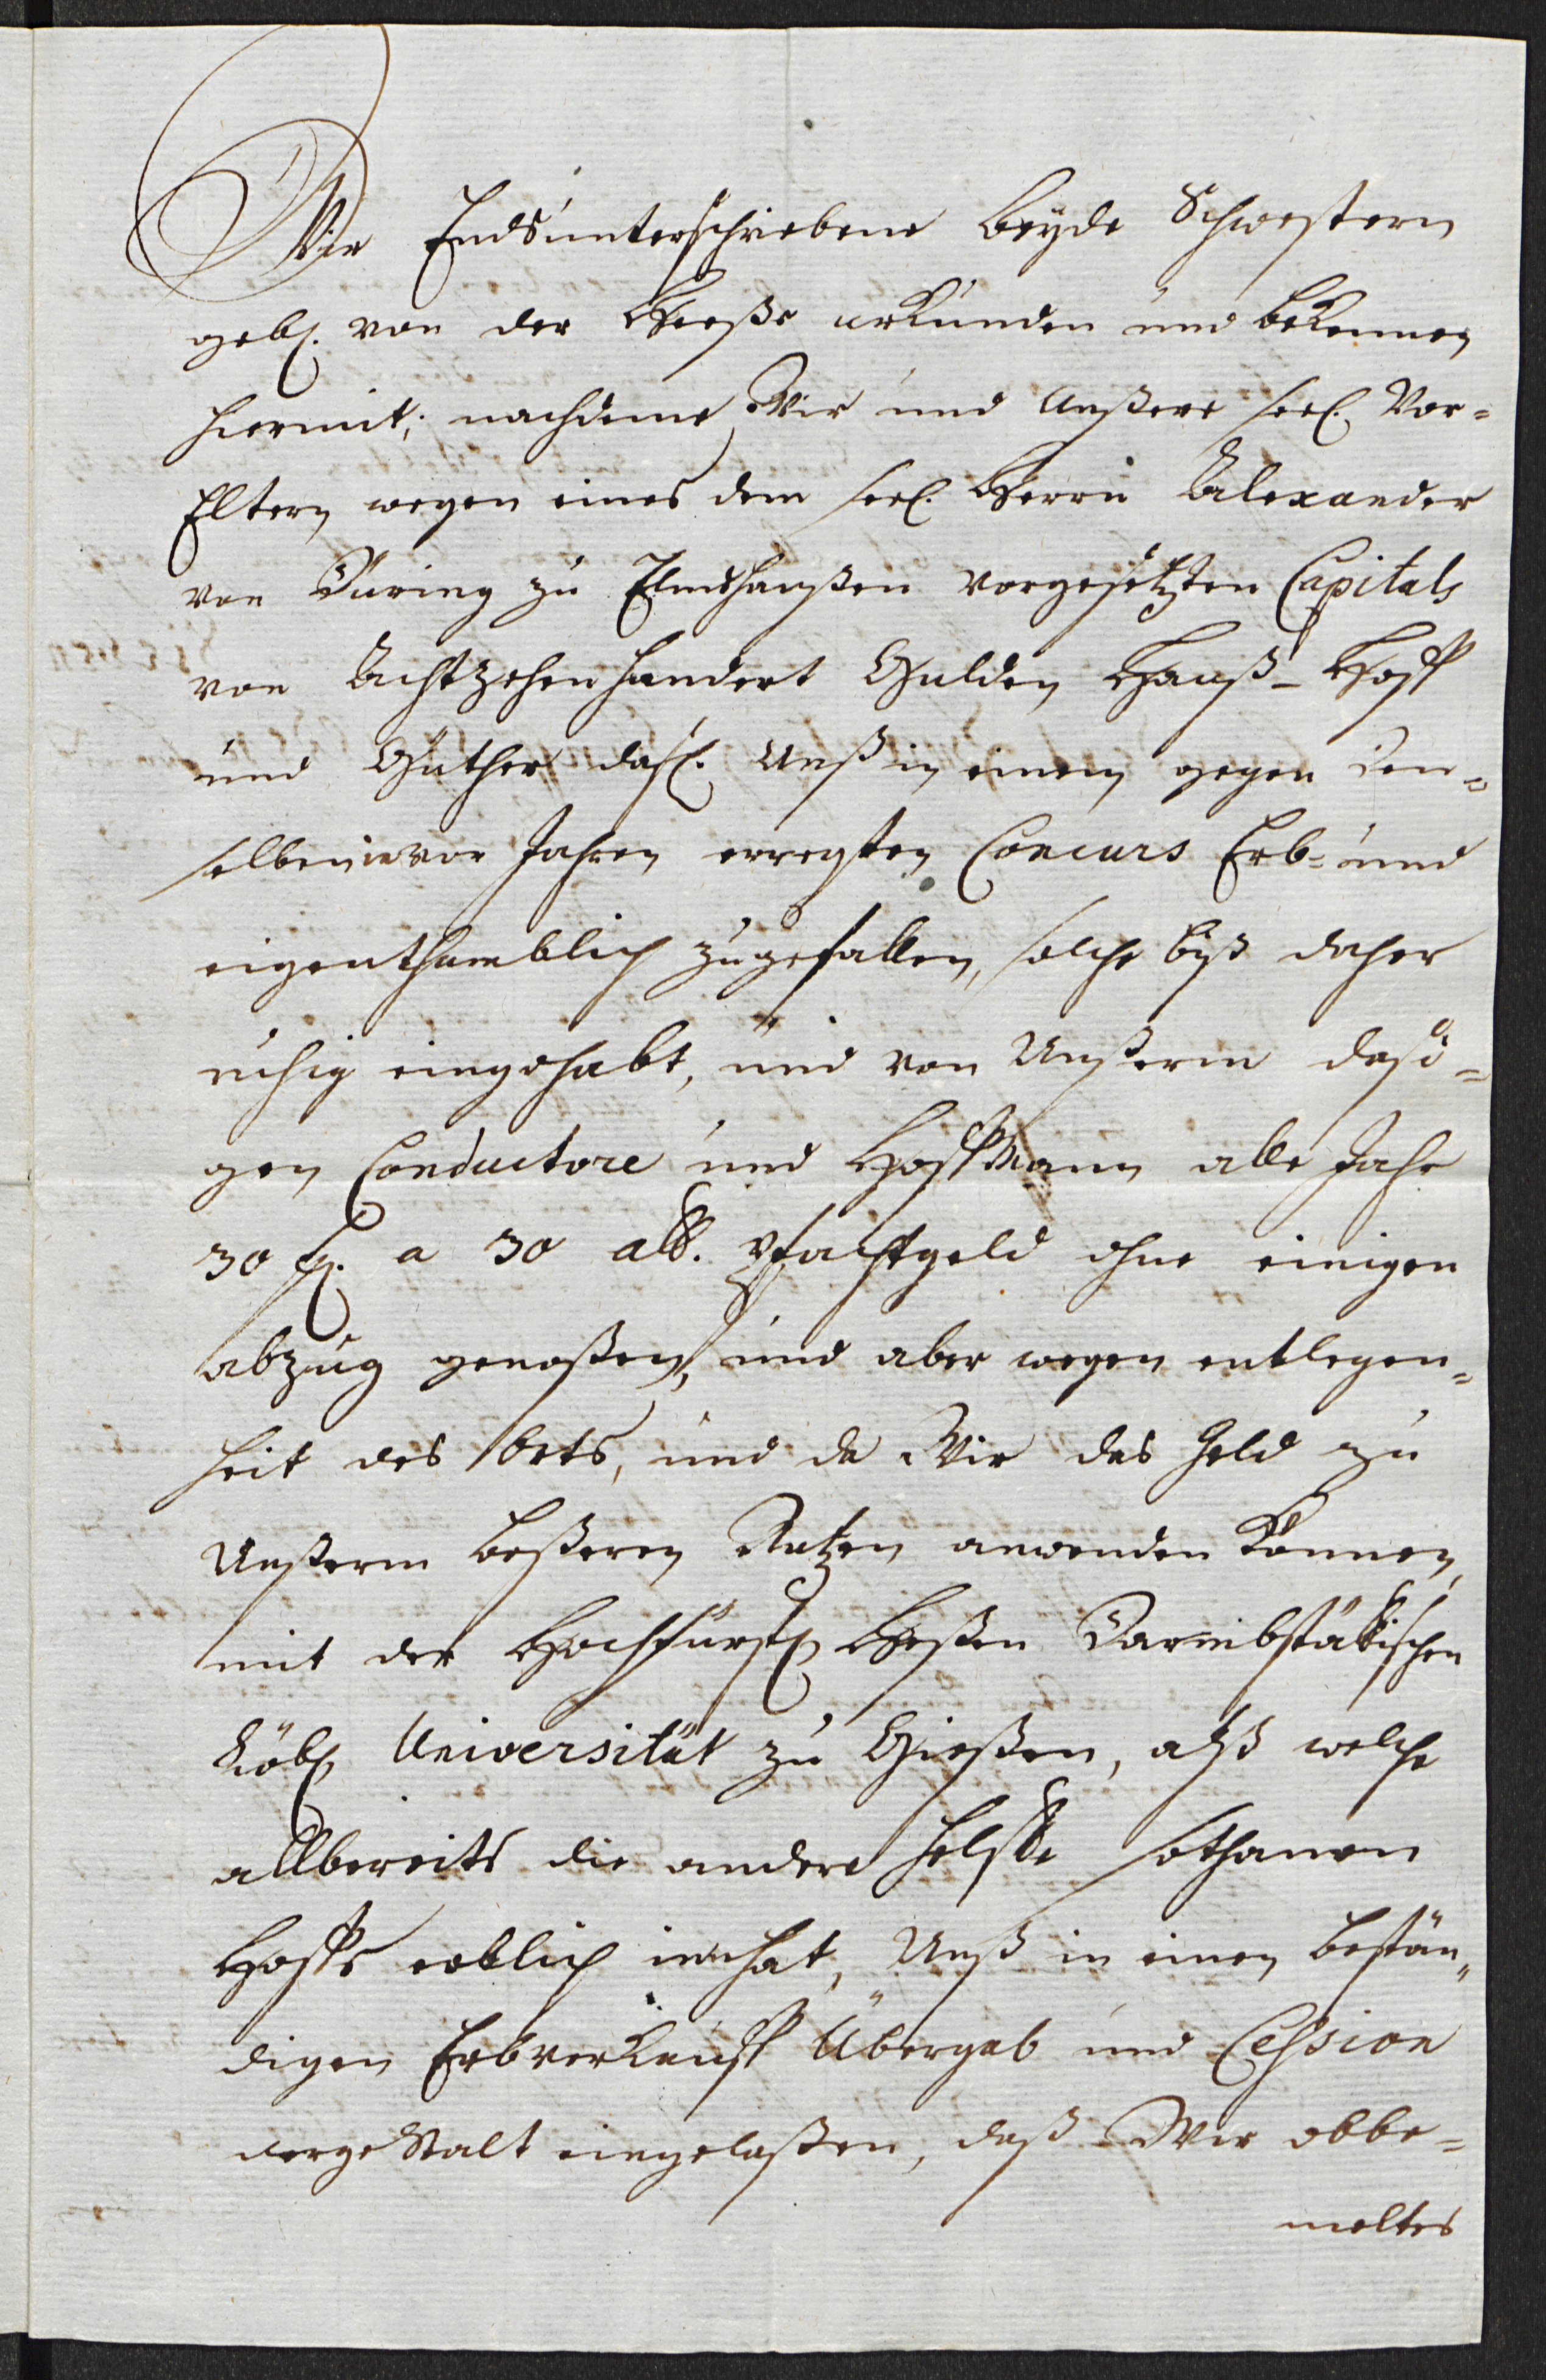 Wir Endsunterschriebene beyde Schwestern
gebl. von der Heeße urkunden und bekennen
hiermit; nachdeme Wir und Unßere seel. Vor=
Eltern wegen eines dem seel. Herrn Alexander
von Düring zu Elmshaußen vorgesetzten Capitals
von Achtzehenhundert Gulden Hauß- Hoff
und Güther das. Unß in einem gegen den=
selben vor Jahren erregten Concurs Erb= und
eigenthumblich zugefallen, solche biß daher
ruhig eingehabt, und von Unßerm dasi=
gen Conductore und HoffMann alle Jahr
30 fl. a 30 alb. Pfachtgeld ohne einigen
abzug genoßen, und aber wegen entlegen=
heit des Orts, und da Wir das Geld zu
Unßerm beßeren Nutzen anwenden können,
mit der Hochfürstl. Heßen Darmbstättischen
Löbl. Universität zu Gießen, alß welche
allbereits die andere helffte sothanen
Hoffs erblich innhat, Unß in einen bestän=
digen Erbverkauff Übergab und Cession
dergestalt eingelaßen, daß Wir obbe=
meltes